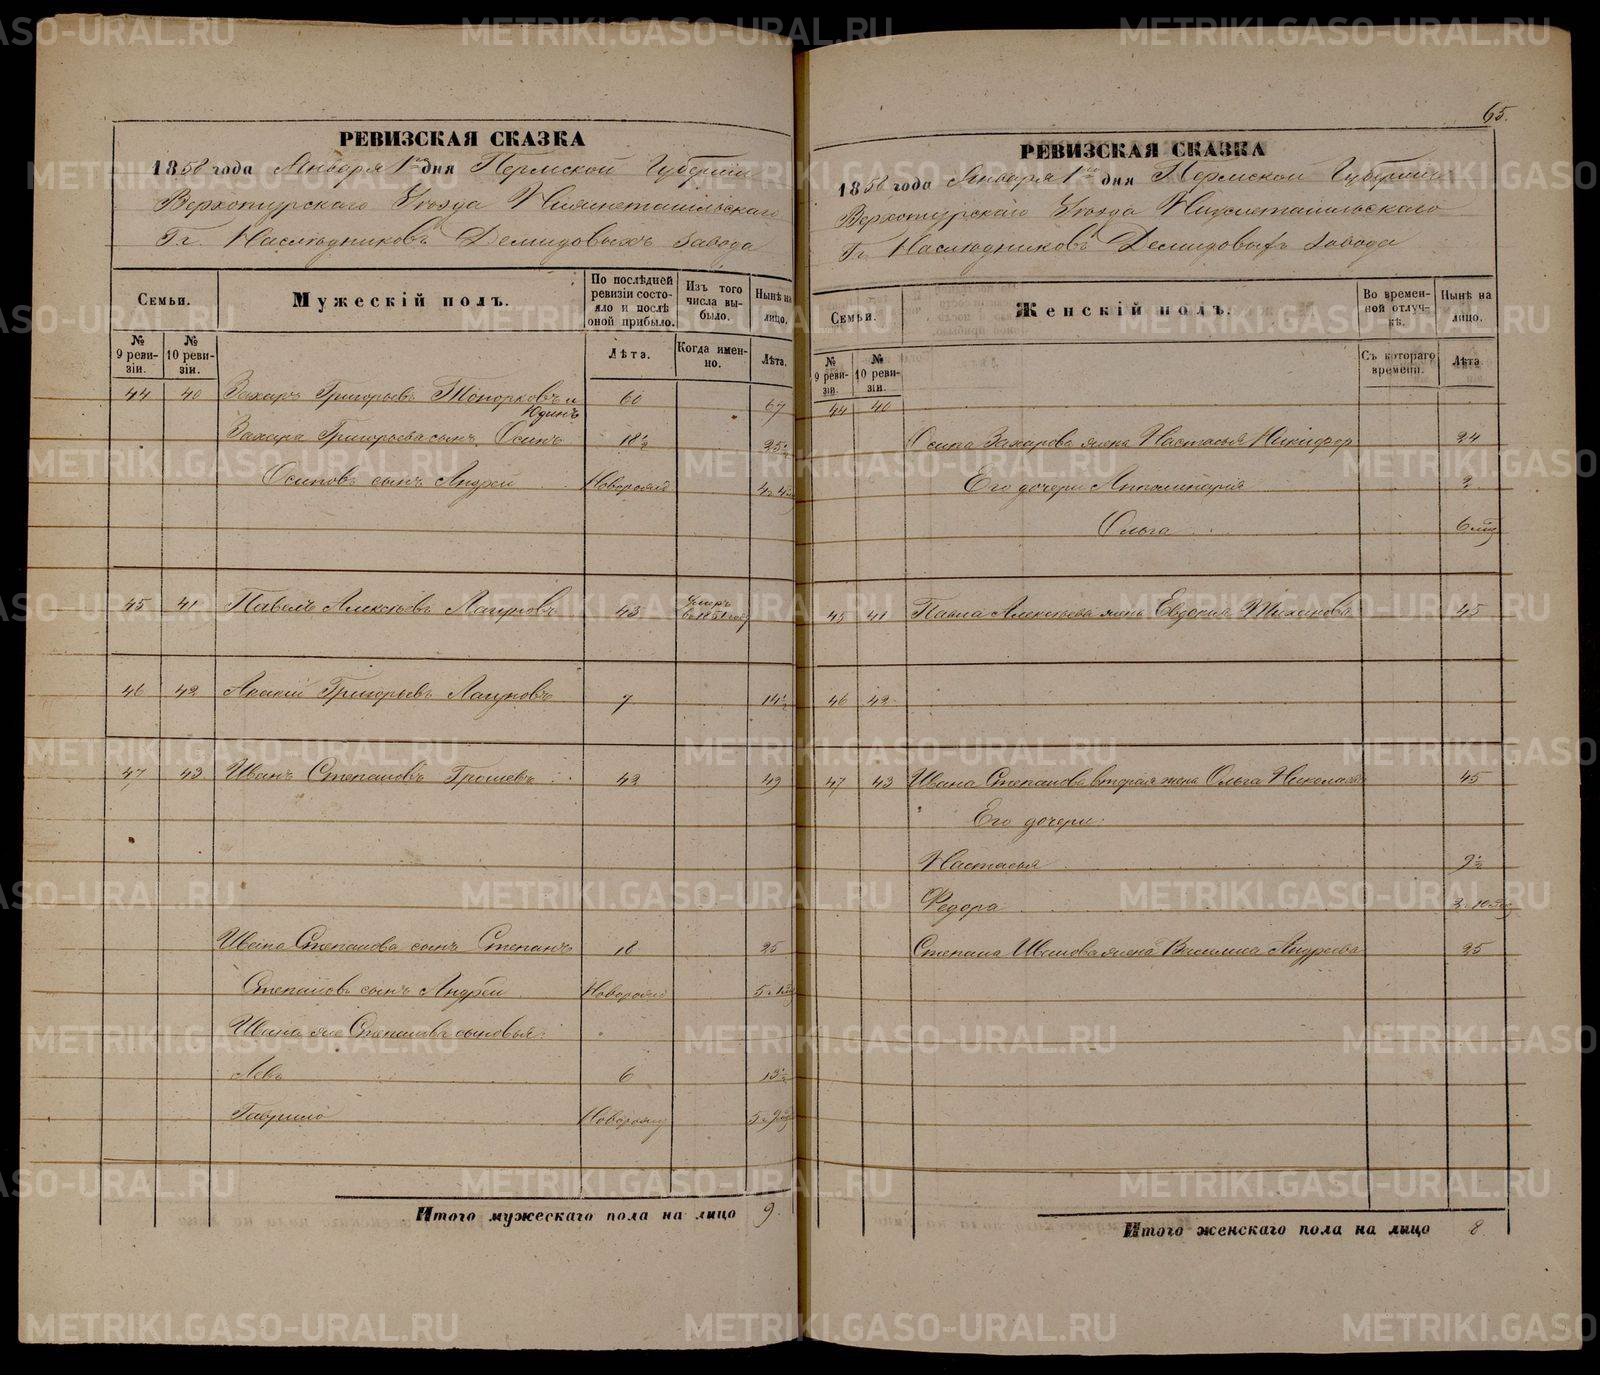 РЕВИЗСКАЯ СКАЗКА
1858 года Января 1го дня Пермской Губернии
Верхотурскаго Уѣзда Нижнетагильскаго
Гг. Наслѣдниковъ Демидовыхъ завода
Семьи.
Мужескій полъ.
По послѣдней ревизіи состояло и послѣ оной прибыло.
Изъ того числа выбыло.
Нынѣ на лицо.
№ 9 ревизіи.
№ 10 ревизіи.
Лѣта.
Когда именно.
Лѣта.
44 40 Захаръ Григорьевъ Топорковъ и 60 67
Юдинъ
Захара Григорьева сынъ Осипъ 18½ 25½
Осиповъ сынъ Андрей Новорожд
45 41 Павелъ Алексѣевъ Лагуновъ 43 Умеръ
въ 1851 году
46 42 Акакій Григорьевъ Лагуновъ 7 14½
47 43 Иванъ Степановъ Грошевъ 42 49
Ивана Степанова сынъ Степанъ 18 25
Степановъ сынъ Андрей Новорожд
Ивана же Степанова сыновья:
Левъ 6 13½
Гаврило Новорожд
Итого мужескаго пола на лицо 9.
65.
РЕВИЗСКАЯ СКАЗКА
1858 года Января 1го дня Пермской Губерніи
Верхотурскаго Уѣзда Нижнетагильскаго
Гг. Наслѣдниковъ Демидовыхъ завода
Семьи.
Женскій полъ.
Во временной отлучкѣ.
Нынѣ на лицо.
№ 9 ревизіи.
№ 10 ревизіи.
Съ котораго времени.
Лѣта
44 40
Осипа Захарова жена Настасья Никифор 24
Его дочери Апполинарія 2
Ольга 6 мѣц
45 41 Павла Алексѣева жена Евдокия Тихонова 45
46 42
47 43 Ивана Степанова вторая жена Ольга Николаева 45
Его дочери:
Настасья 9½
Федора
Степана Иванова жена Василиса Андреева 25
Итого женскаго пола на лицо 8.
METRIKI.GASO-URAL.RU